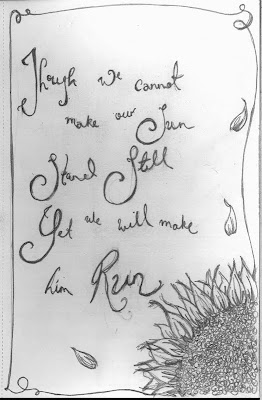 Though we cannot
make our Sun
Stand Still
Yet we will make
him Run